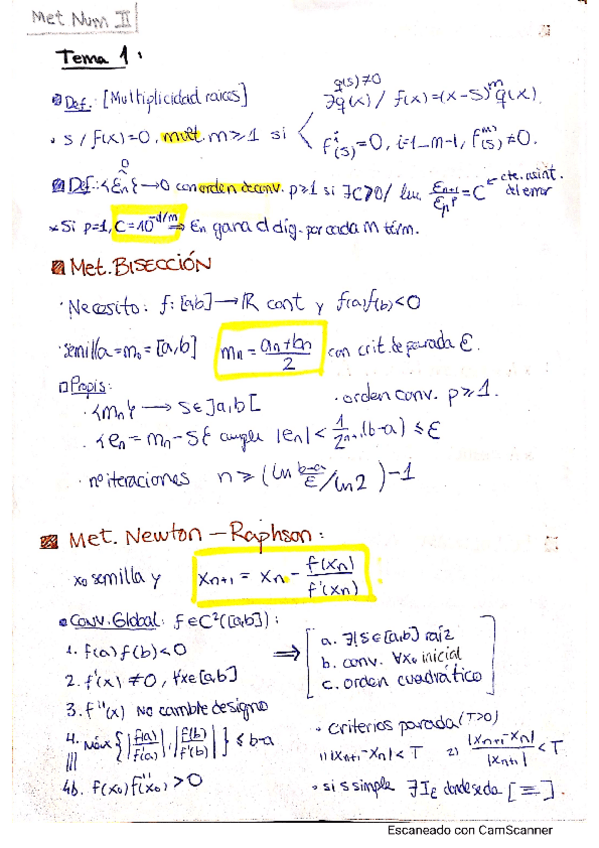 Met Num II
Tema 1:
Def. [Multiplicidad raices]
q(s)≠0
∃q(x) / f(x)=(x-s)^m q(x).
· s / f(x)=0, mult. m≥1 si
f^i(s)=0, i=1_m-1, f^(m)(s)≠0.
Def: {Ɛn}→0 con orden de conv. p≥1 si ∃C>0/ Ɛn+1/Ɛn^p = C ← cte. asint. del error
* Si p=1, C=10^-d/m ⇒ Ɛn gana d díg. por cada m térm.
Met. BISECCIÓN
· Necesito: f:[a,b]→ℝ cont y f(a)f(b)<0
· semilla=m0=[a,b] mn = an+bn/2 con crit. de parada Ɛ.
Propis:
· {mn} → s∈]a,b[ · orden conv. p≥1.
· {en = mn-s} cumple |en| < 1/2^n+1 (b-a) ≤ Ɛ
· nº iteraciones n ≥ (ln b-a/Ɛ / ln2) -1
Met. Newton – Raphson:
x0 semilla y xn+1 = xn - f(xn)/f'(xn)
Conv. Global: f∈C²([a,b]):
1. f(a)f(b)<0
2. f'(x) ≠0, ∀x∈[a,b]
3. f''(x) No cambie de signo
4. Máx{|f(a)/f'(a)|, |f(b)/f'(b)|} ≤ b-a
4b. f(x0)f''(x0) >0
⇒ a. ∃!s∈[a,b] raíz
b. conv. ∀x0 inicial
c. orden cuadrático
· criterios parada (T>0)
1) |xn+1-xn| < T 2) |xn+1-xn|/|xn+1| < T
· si s simple ∃Iε donde se da [≡].
Escaneado con CamScanner